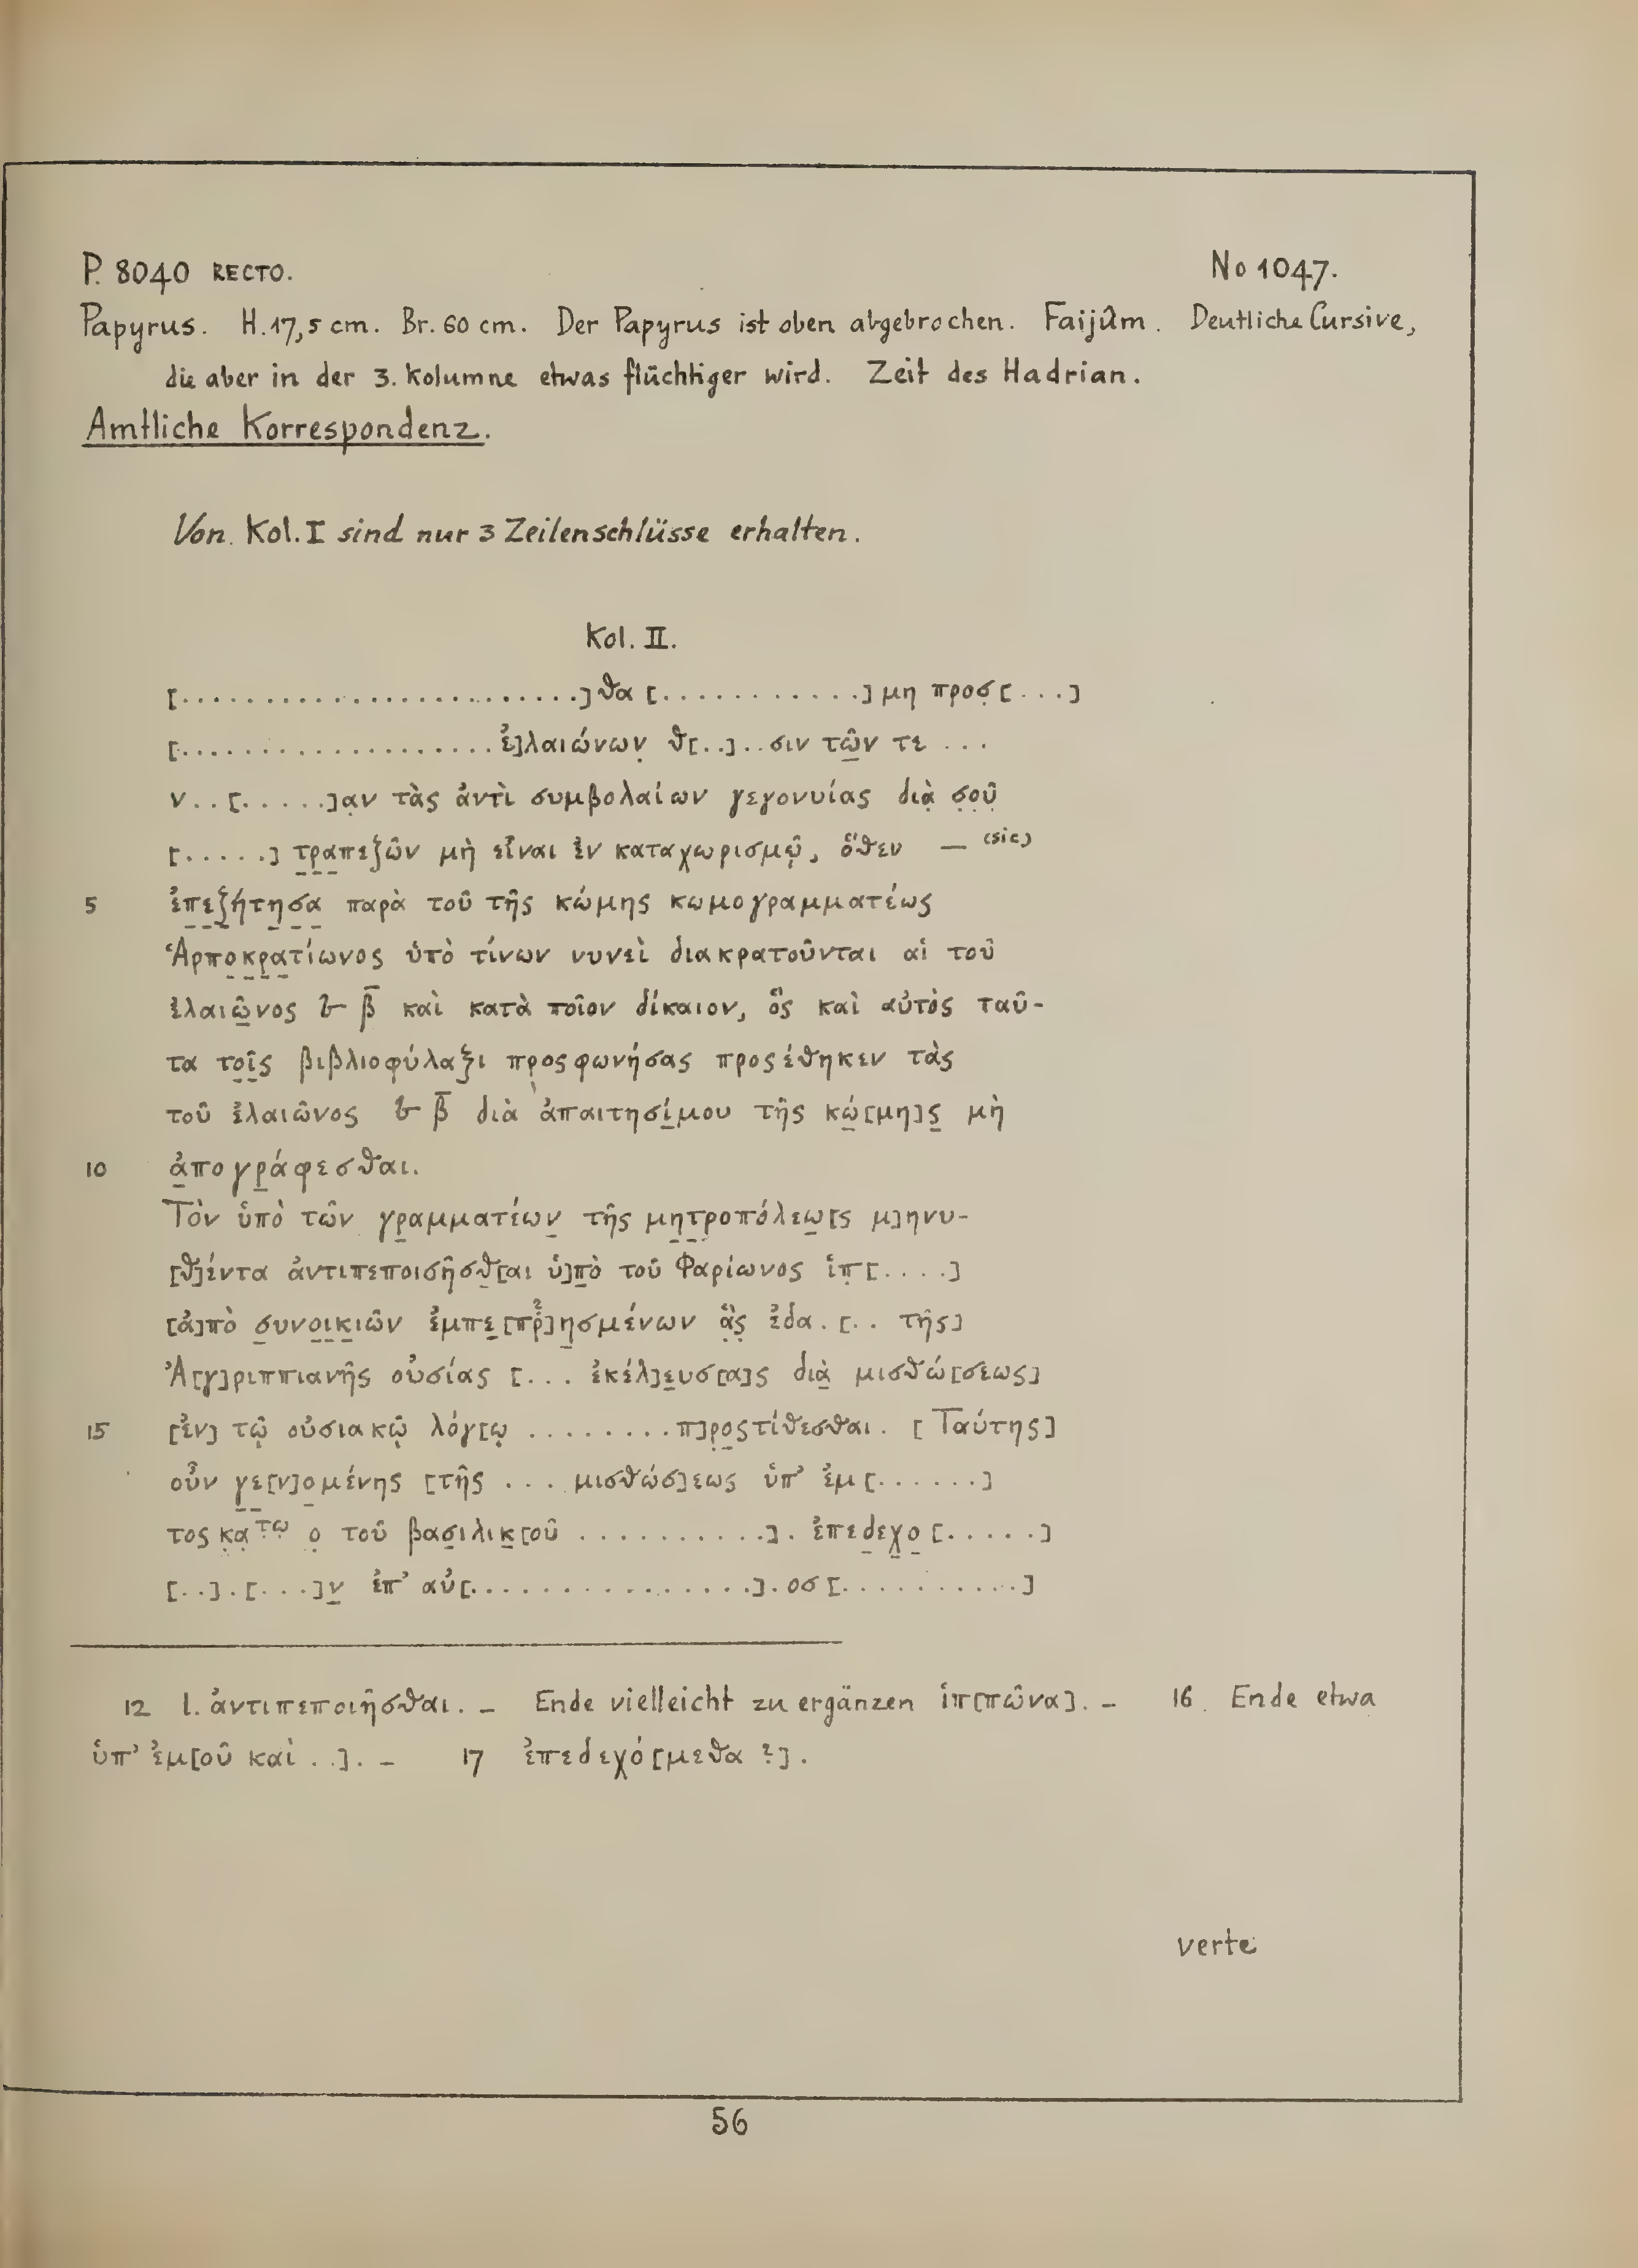 P. 8040 RECTO. No 1047.
Papyrus. H. 17,5 cm. Br. 60 cm. Der Papyrus ist oben abgebrochen. Faijûm. Deutliche Cursive,
die aber in der 3. Kolumne etwas flüchtiger wird. Zeit des Hadrian.
Amtliche Korrespondenz.
Von Kol. I sind nur 3 Zeilenschlüsse erhalten.
Kol. II.
[........................]θα[............]μη προσ̣[...]
[...................ἐ]λαιώνων̣ θ[..]..σιν τῶ̣ν τε ...
ν..[......]α̣ν τὰς ἀντὶ συμβολαίων γεγονυίας διὰ̣ σ̣ο̣ῦ̣
[.....] τ̣ρ̣α̣πεζῶν μὴ εἶναι ἐν καταχωρισμῷ, ὅθεν — (sic)
5 ἐπ̣ε̣ζ̣ήτη̣σ̣α̣ παρὰ τοῦ τῆς κώμης κωμογραμματέως
Ἁρπο̣κ̣ρ̣α̣τίωνος ὑπὸ τίνων νυνεὶ διακρατοῦνται αἱ τοῦ
ἐλαιῶ̣νος 𐅵 β̅ καὶ κατὰ ποῖον δίκαιον, ὃς καὶ αὐτὸς ταῦ-
τα το̣ῖ̣ς βιβλιοφύλαξι προσφωνήσας προσέθηκεν τὰς
τοῦ ἐλαιῶνος 𐅵 β̅ διὰ ἀπαιτησί̣μου τῆς κώ̣[μη]ς̣ μὴ
10 ἀ̣πογρ̣άφεσθαι.
Τὸν ὑπὸ τῶν γρ̣αμματέων̣ τῆς μη̣τ̣ρ̣οπόλεω̣[ς μ]ηνυ-
[θ]έντα ἀντιπεποισῆσθ̣[αι ὑ]π̣ὸ τοῦ Φαρίωνος ἱπ̣[....]
[ἀ]πὸ σ̣υνο̣ι̣κ̣ιῶν ἐμπε̣[πρ(?)]η̣σμένων ἃ̣ς̣ ἐδα.[.. τῆς]
Ἀ[γ]ριππιανῆς οὐσίας [... ἐκέλ]ε̣υσ[α]ς διὰ̣ μισθώ[σεως]
15 [ἐν] τῷ οὐσιακῷ λόγ[ῳ ........π]ρ̣ο̣στίθεσθαι. [Ταύτης]
οὖν γ̣ε̣[ν]ο̣μένης [τῆς ... μισθώσ]εως ὑπ' ἐμ[......]
τος κ̣α̣τω ο̣ τοῦ βασ̣ιλικ̣[οῦ ..........]. ἐπεδ̣ε̣χ̣ο̣[.....]
[..].[....]ν̣ ἐπ' αὐ[...............].οσ[..........]
12 l. ἀντιπεποιῆσθαι. – Ende vielleicht zu ergänzen ἱπ[πῶνα]. – 16 Ende etwa
ὑπ' ἐμ[οῦ καὶ ..]. – 17 ἐπεδεχό[μεθα ?].
verte
56